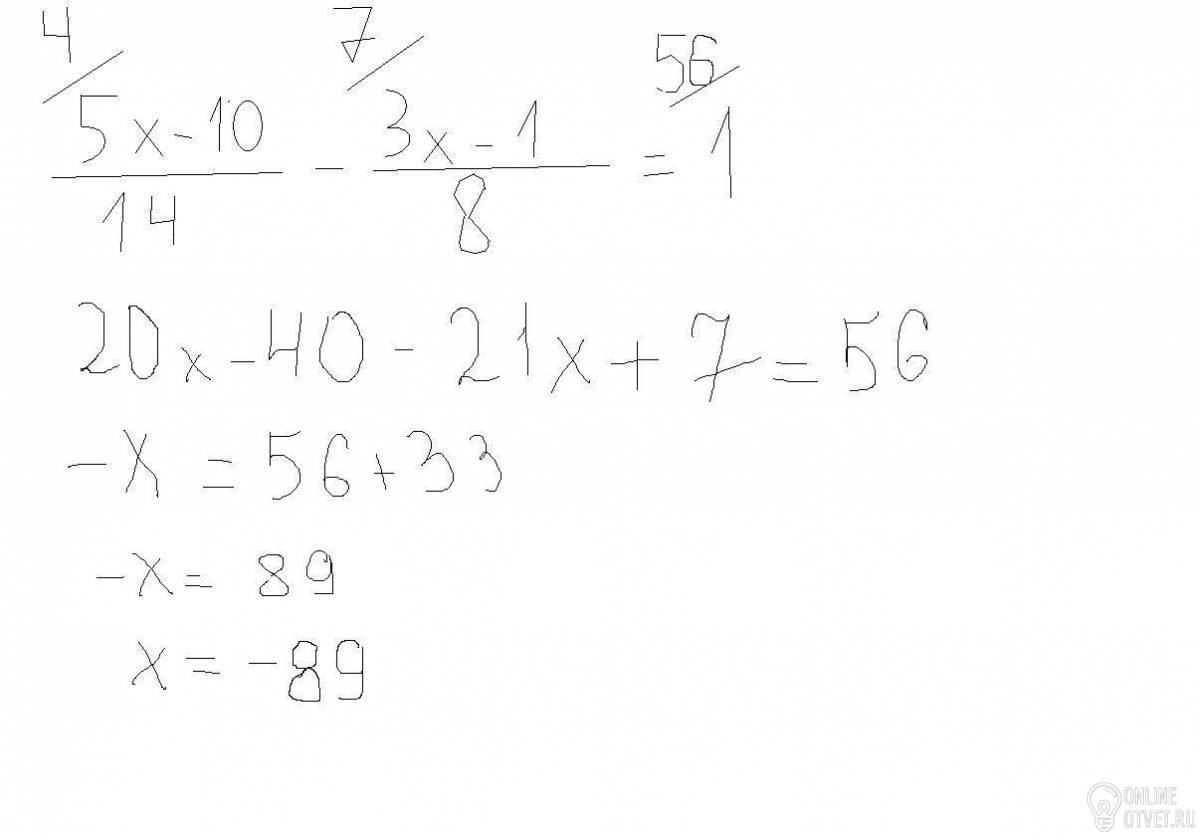 4/ 7/ 56/
5x-10 / 14 - 3x-1 / 8 = 1
20x-40-21x+7=56
-x=56+33
-x=89
x=-89
ONLINE
OTVET.RU